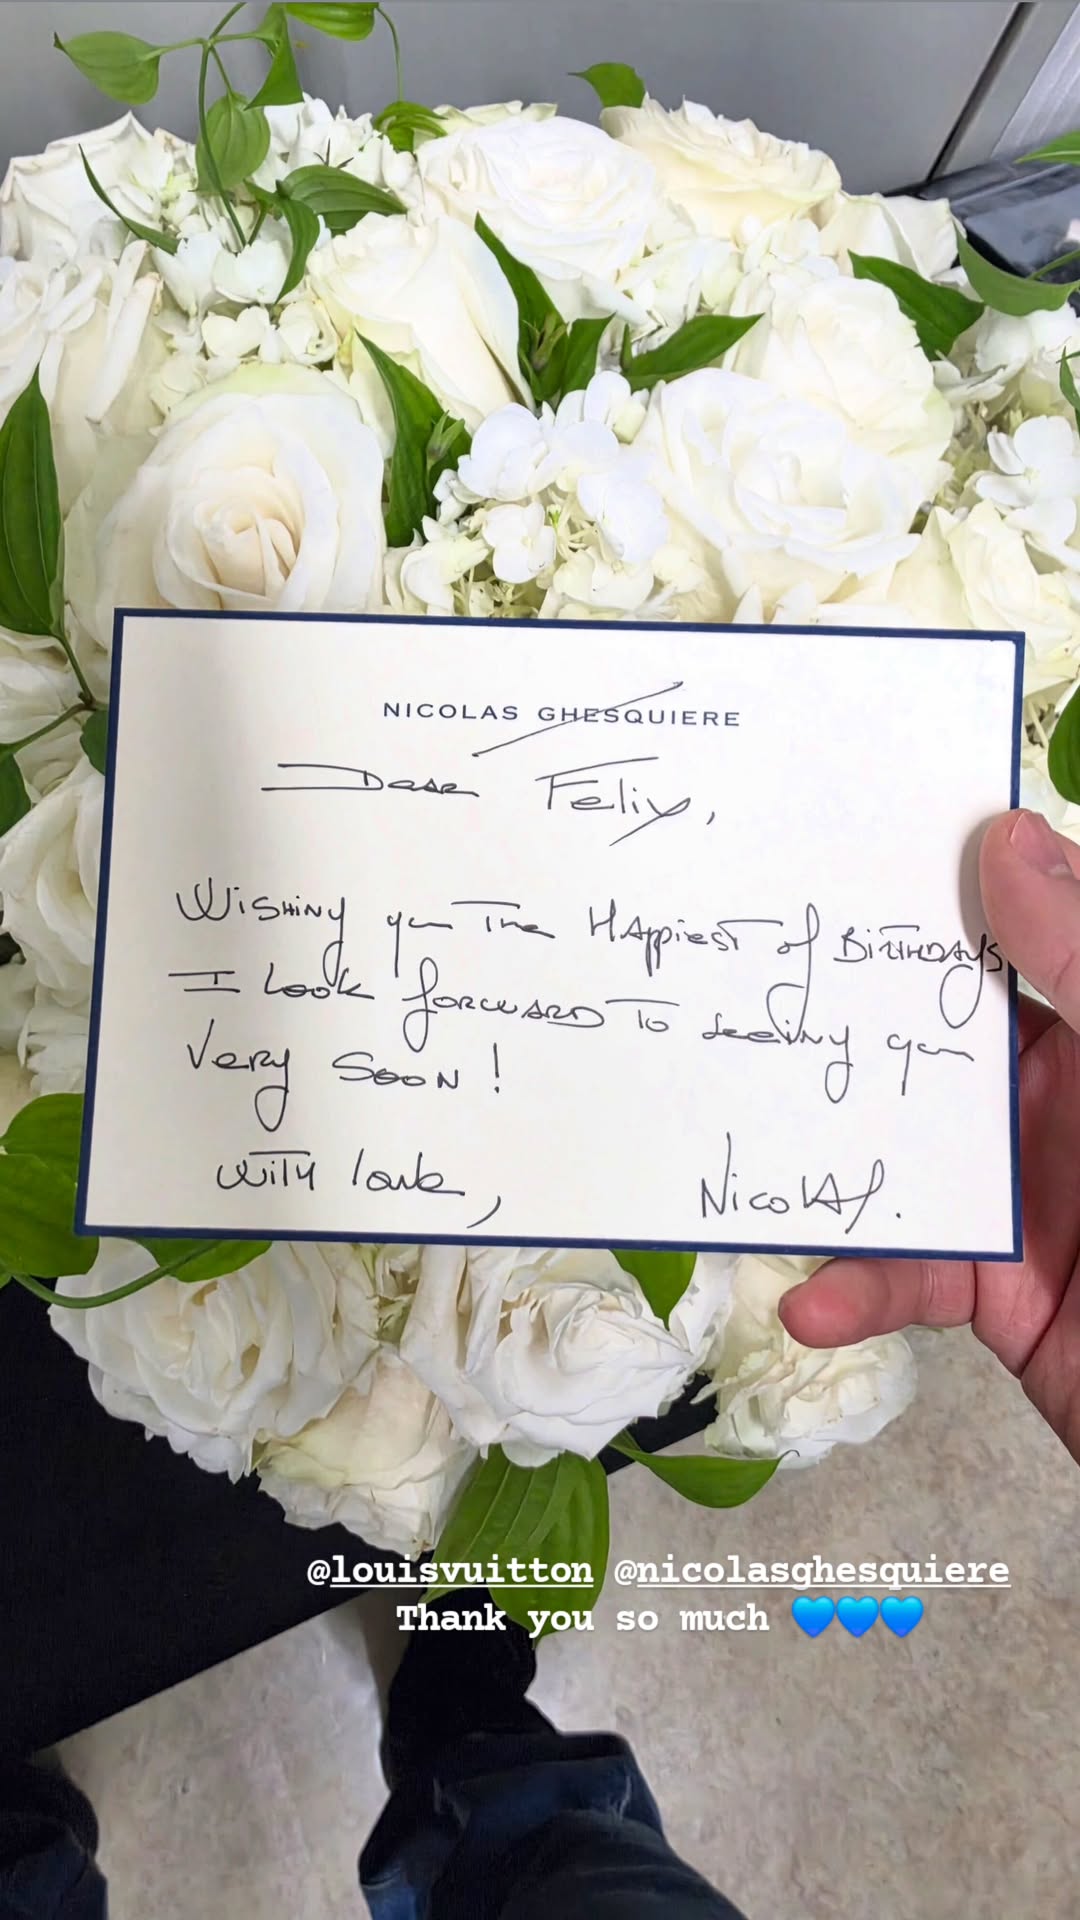 NICOLAS GHESQUIERE
Dear Felix,
Wishing you The Happiest of Birthdays
I look forward To seeing you
Very Soon!
With love,
Nicolas.
@louisvuitton @nicolasghesquiere
Thank you so much 💙💙💙